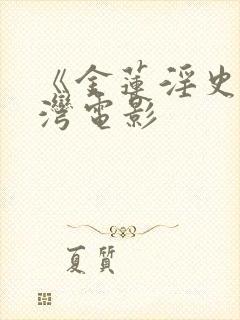 《金莲淫史
湾电影
夏質